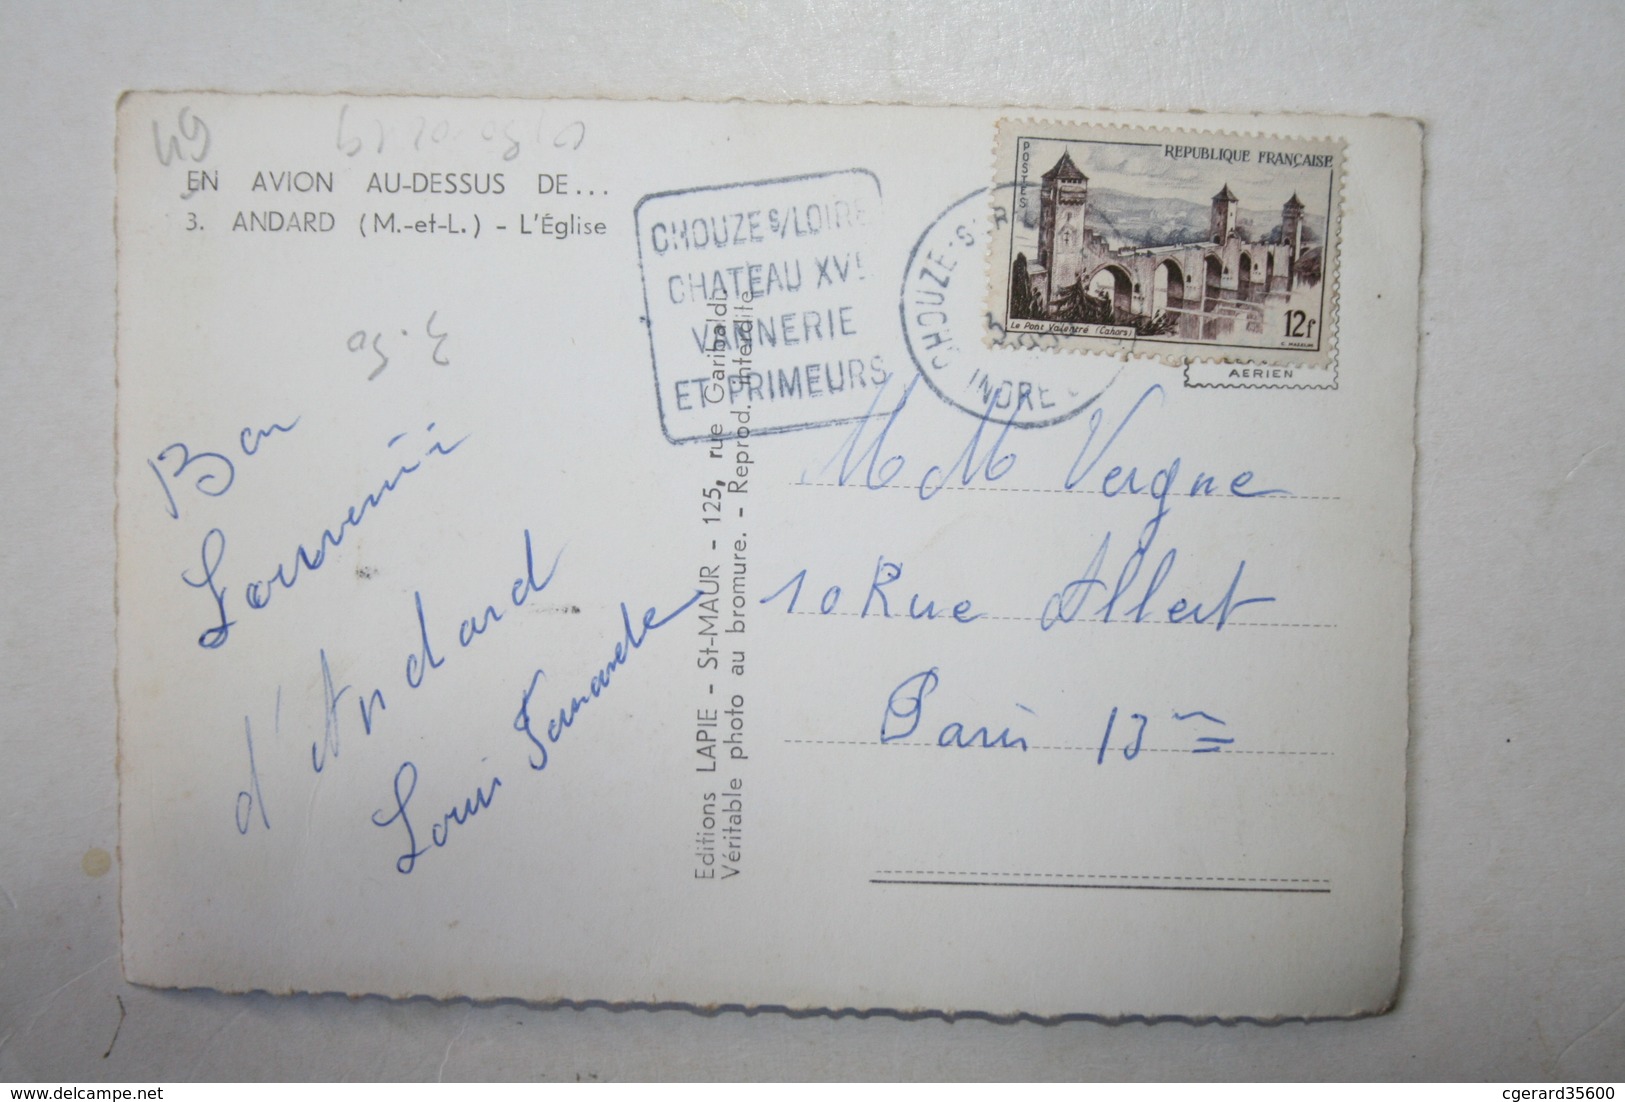 49
EN AVION AU-DESSUS DE...
3. ANDARD (M.-et-L.) - L'Église
3.50
Bon
Souvenir
d'Andard
Louis Fernande
Editions LAPIE - St-MAUR - 125, rue Garibaldi
Véritable photo au bromure. - Reprod. interdite
CHOUZE S/LOIRE
CHATEAU XVE
VANNERIE
ET PRIMEURS
CHOUZE-SUR
INDRE
POSTES
REPUBLIQUE FRANÇAISE
Le Pont Valentré (Cahors)
12f
AERIEN
M M Vergne
10 Rue Albert
Paris 13me
delcampe.net
cgerard35600